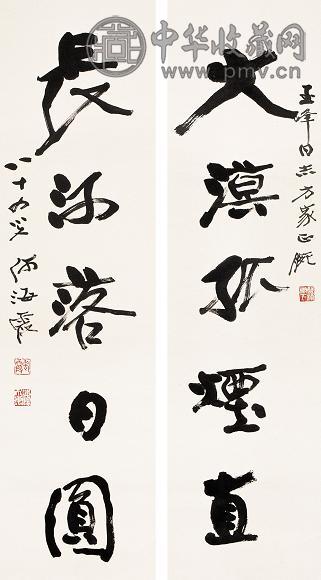 中华收藏网
www.pmv.cn
玉峰同志方家正
大漠孤煙直
長河落日圓
八十
何海霞